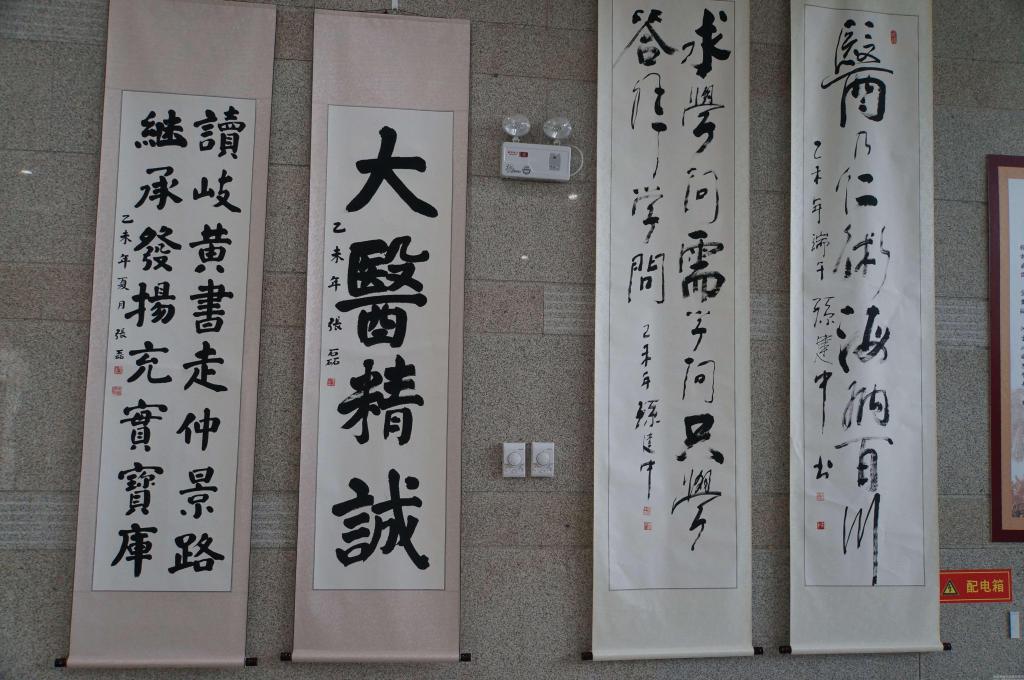 讀岐黄書走仲景路
継承發揚充實寶庫
乙未年夏月張磊
大醫精誠
乙未年張磊
求學问需学问只學
答非学問
乙未年孫建中
醫乃仁術海納百川
乙未年端午孫建中书
配电箱